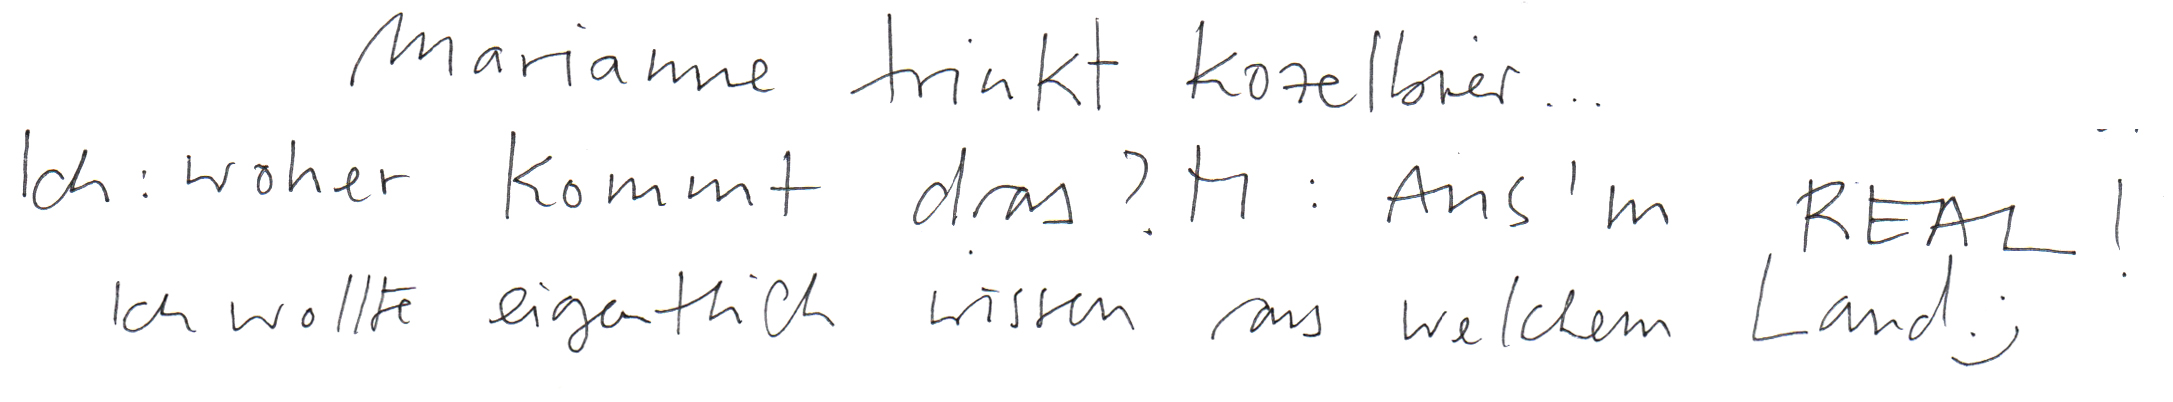 Marianne trinkt Kozelbier...
Ich: woher kommt das? M: Aus'm REAL!
Ich wollte eigentlich wissen aus welchem Land :)